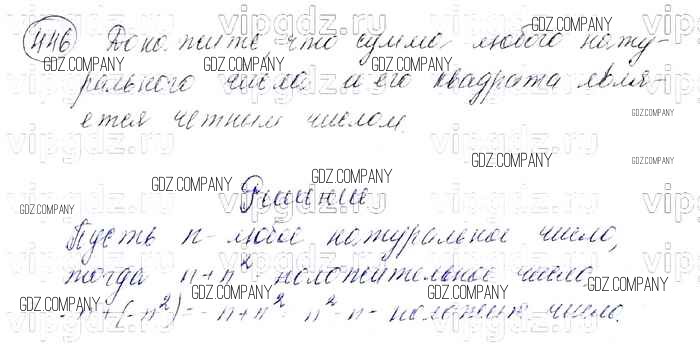 446 Докажите, что сумма любого нату-
рального числа и его квадрата явля-
ется четным числом.
Решение
Пусть n - любое натуральное число,
тогда n+n² положительное число
n²-n - число.
vipgdz.ru
GDZ.COMPANY